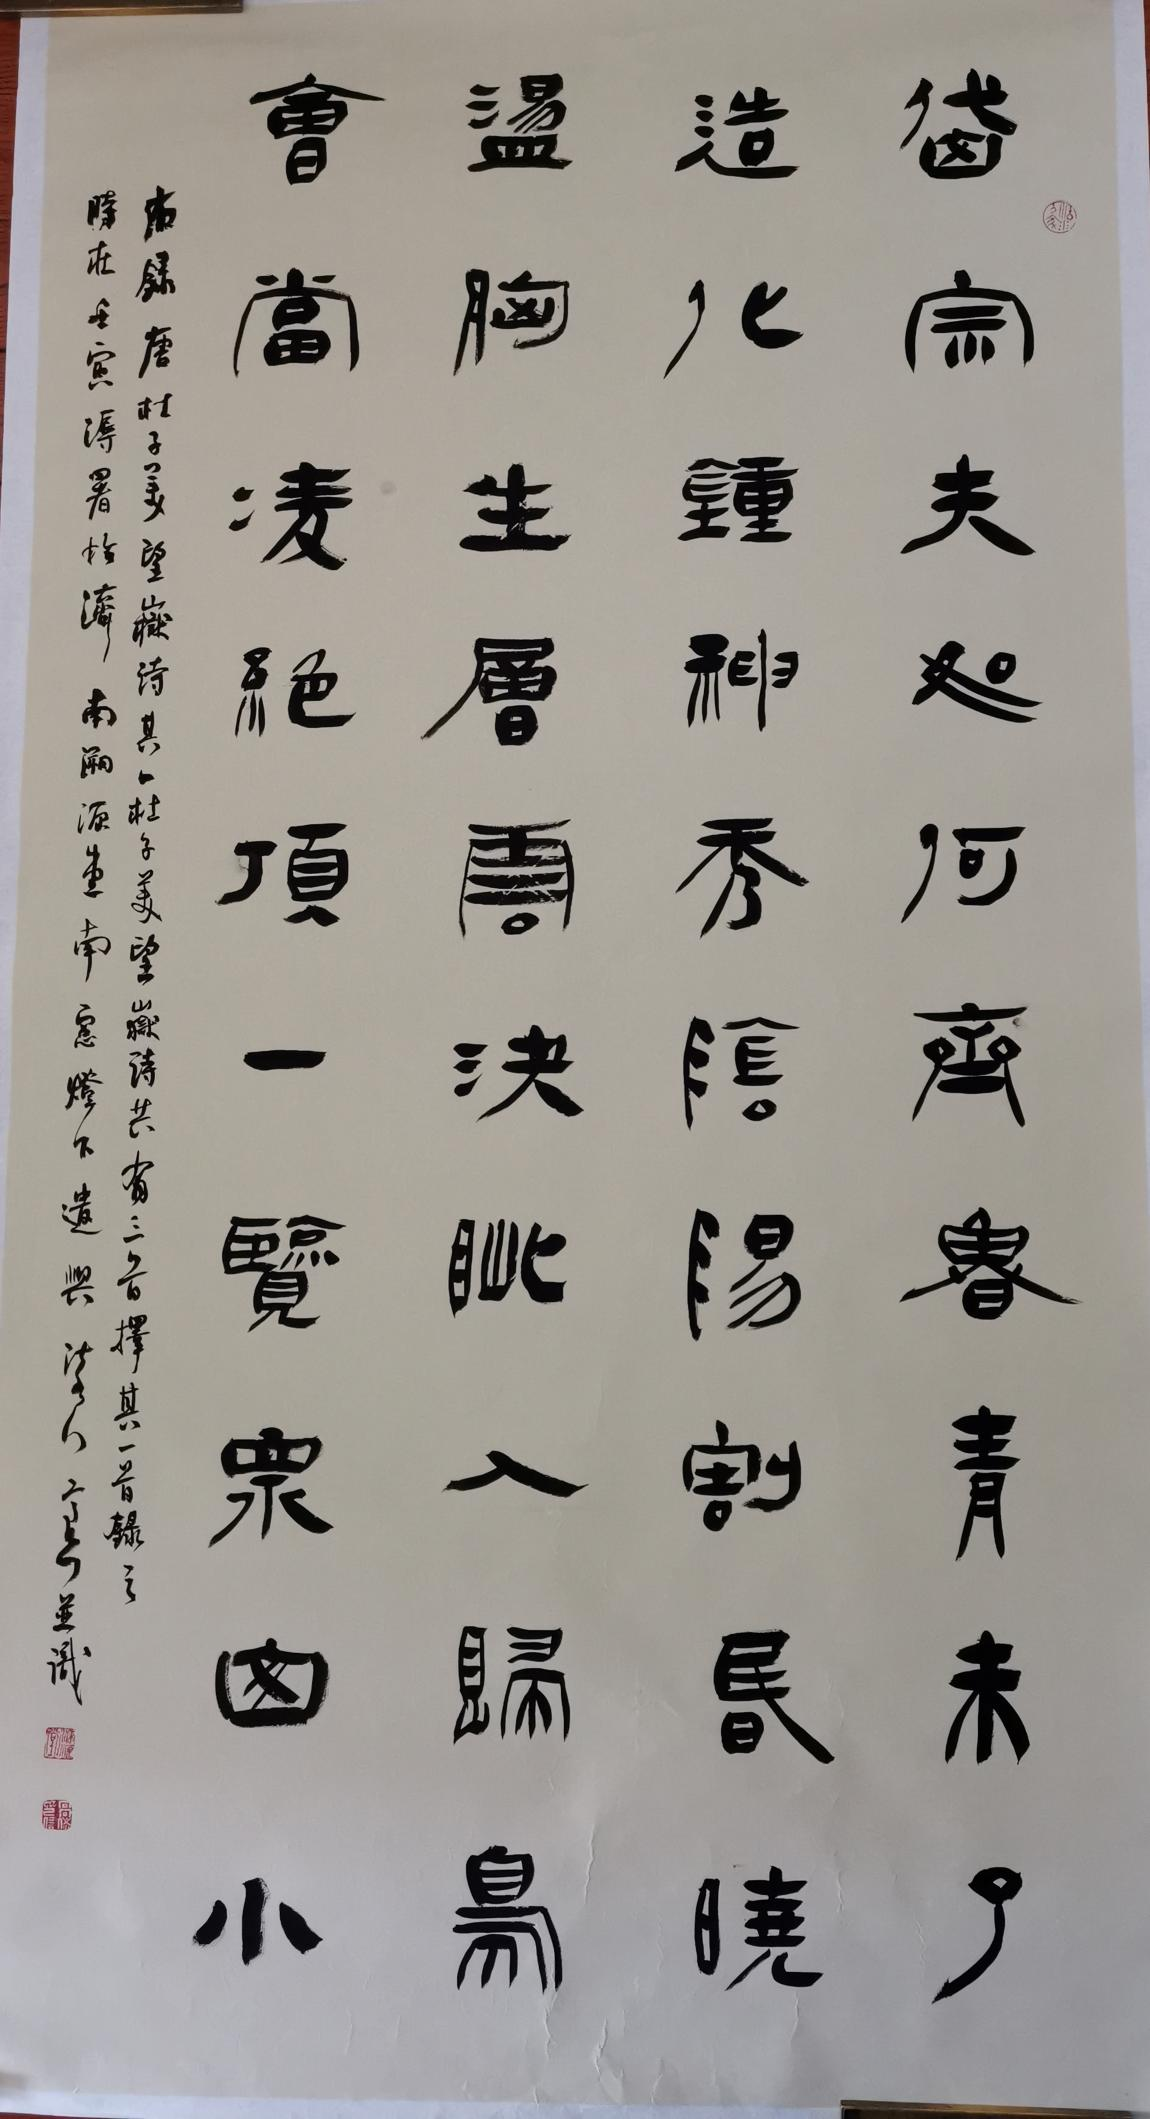 岱宗夫如何齊魯青未了
造化鍾神秀陰陽割昏曉
盪胸生層雲決眦入歸鳥
會當凌絕頂一覽眾山小
節錄唐杜子美望嶽詩其一杜子美望嶽詩共有三首擇其一首錄之
時在壬寅溽暑於濟南溯源堂南窗燈下遣興 並識